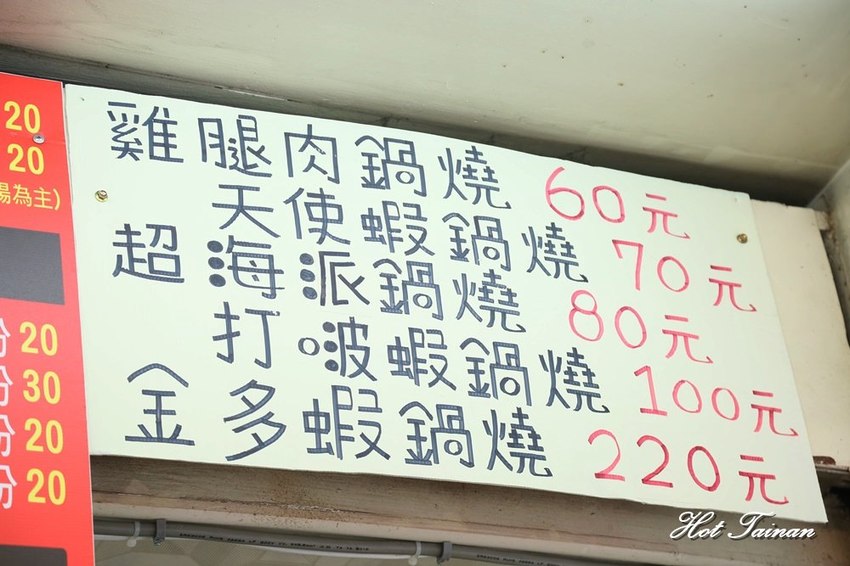 雞腿肉鍋燒 60元
天使蝦鍋燒 70元
超海派鍋燒 80元
打啵蝦鍋燒 100元
金多蝦鍋燒 220元
20
20
湯為主)
份20
份30
份20
份20
Hot Tainan